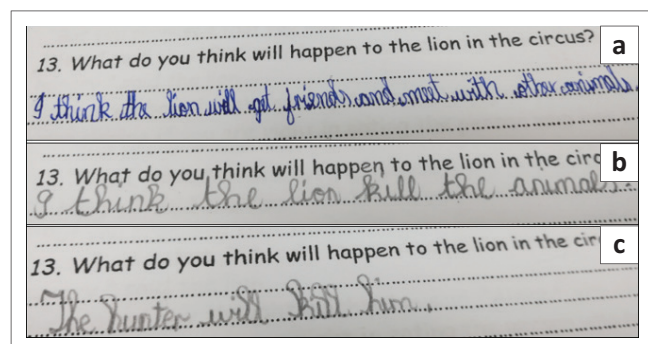 13. What do you think will happen to the lion in the circus?
a
I think the lion will get friends and meet with other animals.
13. What do you think will happen to the lion in the circ
b
I think the lion kill the animals.
13. What do you think will happen to the lion in the cir
c
The hunter will kill him.